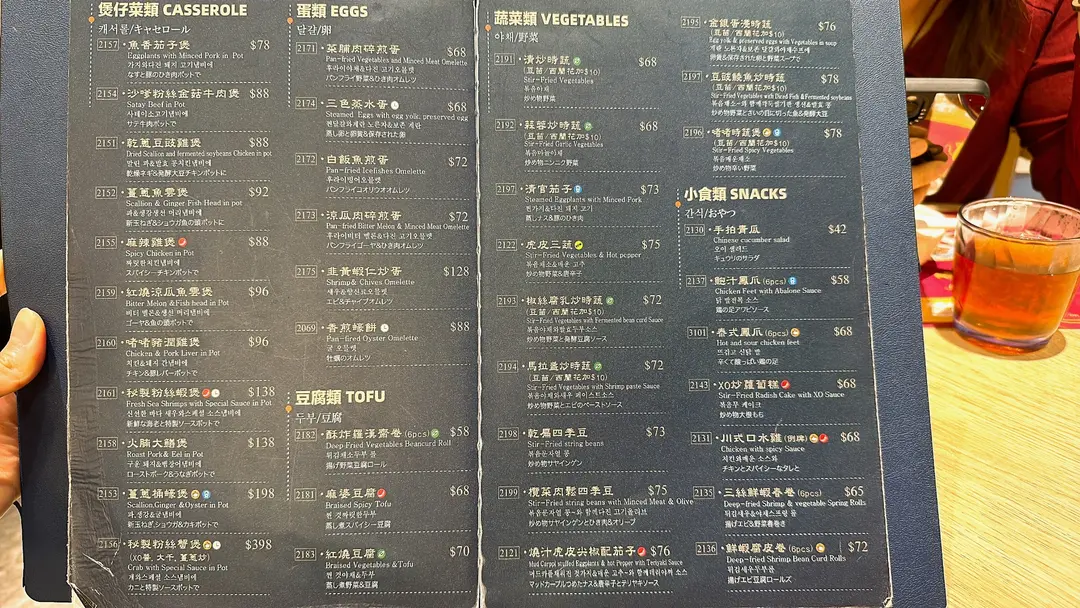 煲仔菜類 CASSEROLE
캐서롤/キャセロール
2157 魚香茄子煲 $78
Eggplants with Minced Pork in Pot
가지와다진 돼지 고기냄비
なすと豚のひき肉ポットで
2154 沙嗲粉絲金菇牛肉煲 $88
Satay Beef in Pot
사테이소고기냄비에
サテ牛肉ポットで
2151 乾葱豆豉雞煲 $88
Dried Scallion and fermented soybeans Chicken in pot
말린 파&발효 콩치킨냄비에
乾燥ネギ&発酵大豆チキンポットに
2152 薑葱魚雲煲 $92
Scallion & Ginger Fish Head in pot
파&생강생선 머리냄비에
新玉ねぎ&ショウガ魚の頭ポットに
2155 麻辣雞煲 $88
Spicy Chicken in Pot
짜릿한치킨냄비에
スパイシーチキンポットで
2159 紅燒涼瓜魚雲煲 $96
Bitter Melon &Fish head in Pot
비터 멜론&생선 머리냄비에
ゴーヤ&魚の頭ポットで
2160 啫啫豬潤雞煲 $96
Chicken & Pork Liver in Pot
치킨&돼지 간냄비에
チキン&豚レバーポットで
2161 秘製粉絲蝦煲 $138
Fresh Sea Shrimps with Special Sauce in Pot
신선한 바다 새우와스페셜 소스냄비에
新鮮な海老と特製ソースポットで
2158 火腩大鱔煲 $138
Roast Pork& Eel in Pot
구운 돼지&뱀장어냄비에
ローストポーク&うなぎポットで
2153 薑葱桶蠔煲 $198
Scallion,Ginger &Oyster in Pot
파,생강&굴냄비에
新玉ねぎ,ショウガ&カキポットで
2156 秘製粉絲蟹煲 $398
(XO醬, 大千, 薑葱炒)
Crab with Special Sauce in Pot
게와스페셜 소스냄비에
カニと特製ソースポットで
蛋類 EGGS
달걀/卵
2171 菜脯肉碎煎蛋 $68
Pan-fried Vegetables and Minced Meat Omelette
후라이야채&다진 고기오믈렛
パンフライ野菜&ひき肉オムレツ
2174 三色蒸水蛋 $68
Steamed Eggs with egg yolk, preserved egg
찐달걀과계란 노른자&보존 계란
蒸し卵と卵黄&保存された卵
2172 白飯魚煎蛋 $72
Pan-fried Icefishes Omelette
후라이빙어오믈렛
パンフライコオリウオオムレツ
2173 涼瓜肉碎煎蛋 $72
Pan-fried Bitter Melon & Minced Meat Omelette
후라이비터 멜론&다진 고기오믈렛
パンフライゴーヤ&ひき肉オムレツ
2175 韮黃蝦仁炒蛋 $128
Shrimp& Chives Omelette
새우&향신료오믈렛
エビ&チャイブオムレツ
2069 香煎蠔餅 $88
Pan-fired Oyster Omelette
굴 오믈렛
牡蠣のオムレツ
豆腐類 TOFU
두부/豆腐
2182 酥炸羅漢齋卷 (6pcs) $58
Deep-Fried Vegetables Beancurd Roll
튀김채소두부 롤
揚げ野菜豆腐ロール
2181 麻婆豆腐 $68
Braised Spicy Tofu
찐 것짜릿한두부
蒸し煮スパイシー豆腐
2183 紅燒豆腐 $70
Braised Vegetables &Tofu
찐 것야채&두부
蒸し煮野菜&豆腐
蔬菜類 VEGETABLES
야채/野菜
2191 清炒時蔬 $68
(豆苗/西蘭花加$10)
Stir-Fried Vegetables
볶음야채
炒め物野菜
2192 蒜蓉炒時蔬 $68
(豆苗/西蘭花加$10)
Stir-Fried Garlic Vegetables
볶음마늘야채
炒め物ニンニク野菜
2197 清官茄子 $73
Steamed Eggplants with Minced Pork
찐가지&다진 돼지 고기
蒸しナス&豚のひき肉
2122 虎皮三蔬 $75
Stir-Fried Vegetables & Hot pepper
볶음채소&매운 고추
炒め物野菜&唐辛子
2193 椒絲腐乳炒時蔬 $72
(豆苗/西蘭花加$10)
Stir-Fried Vegetables with Fermented bean curd Sauce
볶음야채와발효두부소스
炒め物野菜と発酵豆腐ソース
2194 馬拉盞炒時蔬 $72
(豆苗/西蘭花加$10)
Stir-Fried Vegetables with Shrimp paste Sauce
볶음야채와새우 페이스트소스
炒め物野菜とエビのペーストソース
2198 乾扁四季豆 $73
Stir-Fried string beans
볶음문자열 콩
炒め物サヤインゲン
2199 欖菜肉鬆四季豆 $75
Stir-Fried string beans with Minced Meat & Olive
볶음문자열 콩-와 함께다진 고기올리브
炒め物サヤインゲンとひき肉&オリーブ
2121 燒汁虎皮尖椒配茄子 $76
Mud Carppi stuffed Eggplants & hot Pepper with Teriyaki Sauce
머드카플채워진 것가지&매운 고추-와 함께데리야끼 소스
マッドカープルつめたナス&唐辛子とテリヤキソース
2195 金銀蛋浸時蔬 $76
(豆苗/西蘭花加$10)
Egg yolk & preserved eggs with Vegetables in soup
계란 노른자&보존 달걀과야채수프에
卵黄&保存された卵と野菜スープで
2197 豆豉鯪魚炒時蔬 $78
(豆苗/西蘭花加$10)
Stir-Fried Vegetables with Diced Fish &Fermented soybeans
볶음채소-와 함께깍둑썰기한 생선&발효 콩
炒め物野菜とさいの目に切った魚&発酵大豆
2196 啫啫時蔬煲 $78
(豆苗/西蘭花加$10)
Stir-Fried Spicy Vegetables
볶음매운채소
炒め物辛い野菜
小食類 SNACKS
간식/おやつ
2130 手拍青瓜 $42
Chinese cucumber salad
오이 샐러드
キュウリのサラダ
2137 鮑汁鳳爪 (6pcs) $58
Chicken Feet with Abalone Sauce
닭 발전복 소스
鶏の足アワビソース
3101 泰式鳳爪 (6pcs) $68
Hot and sour chicken feet
뜨겁고 신닭 발
辛くて酸っぱい鶏の足
2143 XO炒蘿蔔糕 $68
Stir-Fried Radish Cake with XO Sauce
볶음무 케이크
炒め物大根もち
2131 川式口水雞 (例牌) $68
Chicken with spicy Sauce
치킨와매운 소스와
チキンとスパイシーなタレと
2135 三絲鮮蝦春卷 (6pcs) $65
Deep-fried Shrimp & vegetable Spring Rolls
튀김새우&야채스프링 롤
揚げエビ&野菜春巻き
2136 鮮蝦腐皮卷 (6pcs) $72
Deep-fried Shrimp Bean Curd Rolls
튀김새우두부롤
揚げエビ豆腐ロールズ